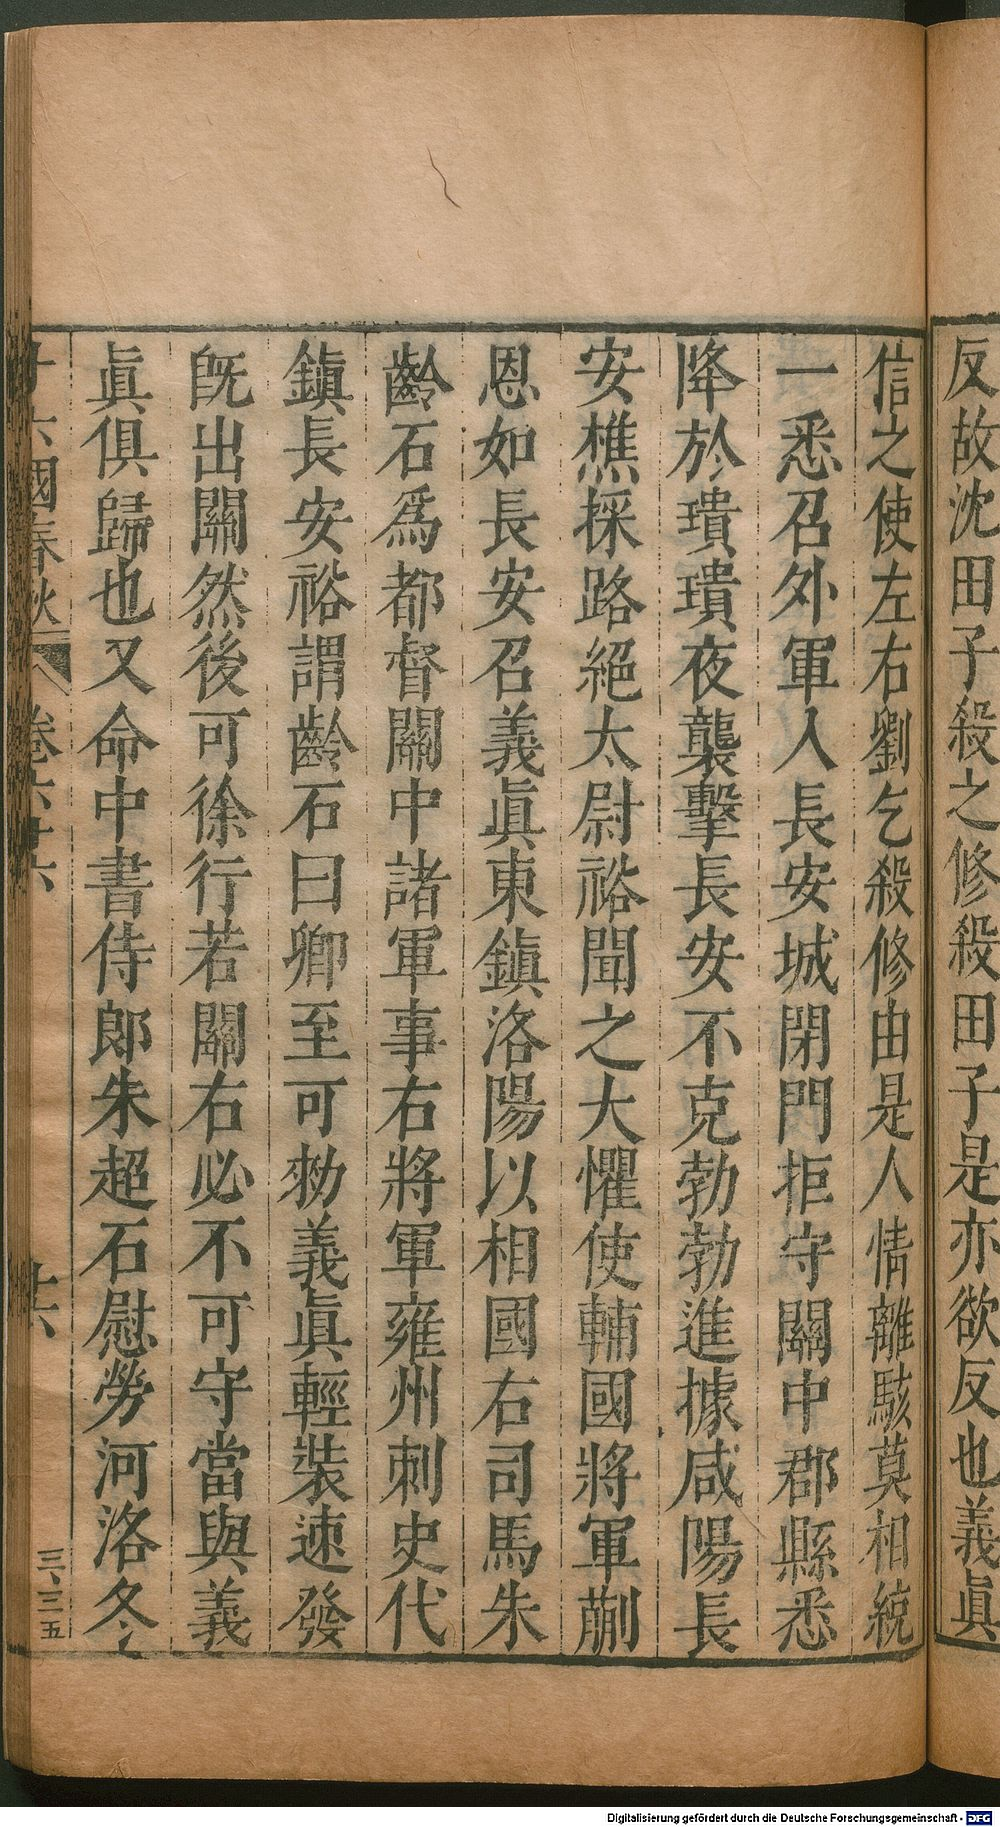 反故沈田子殺之修殺田子是亦欲反也義眞
信之使左右劉乞殺修由是人情離駭莫相統
一悉召外軍入長安城閉門拒守關中郡縣悉
降於璝璝夜襲擊長安不克勃勃進據咸陽長
安樵採路絕太尉裕聞之大懼使輔國將軍蒯
恩如長安召義眞東鎭洛陽以相國右司馬朱
齡石爲都督關中諸軍事右將軍雍州刺史代
鎭長安裕謂齡石曰卿至可勑義眞輕裝速發
旣出關然後可徐行若關右必不可守當與義
眞俱歸也又命中書侍郞朱超石慰勞河洛冬
十六國春秋 卷六十六 十六 三、三五
Digitalisierung gefördert durch die Deutsche Forschungsgemeinschaft - DFG